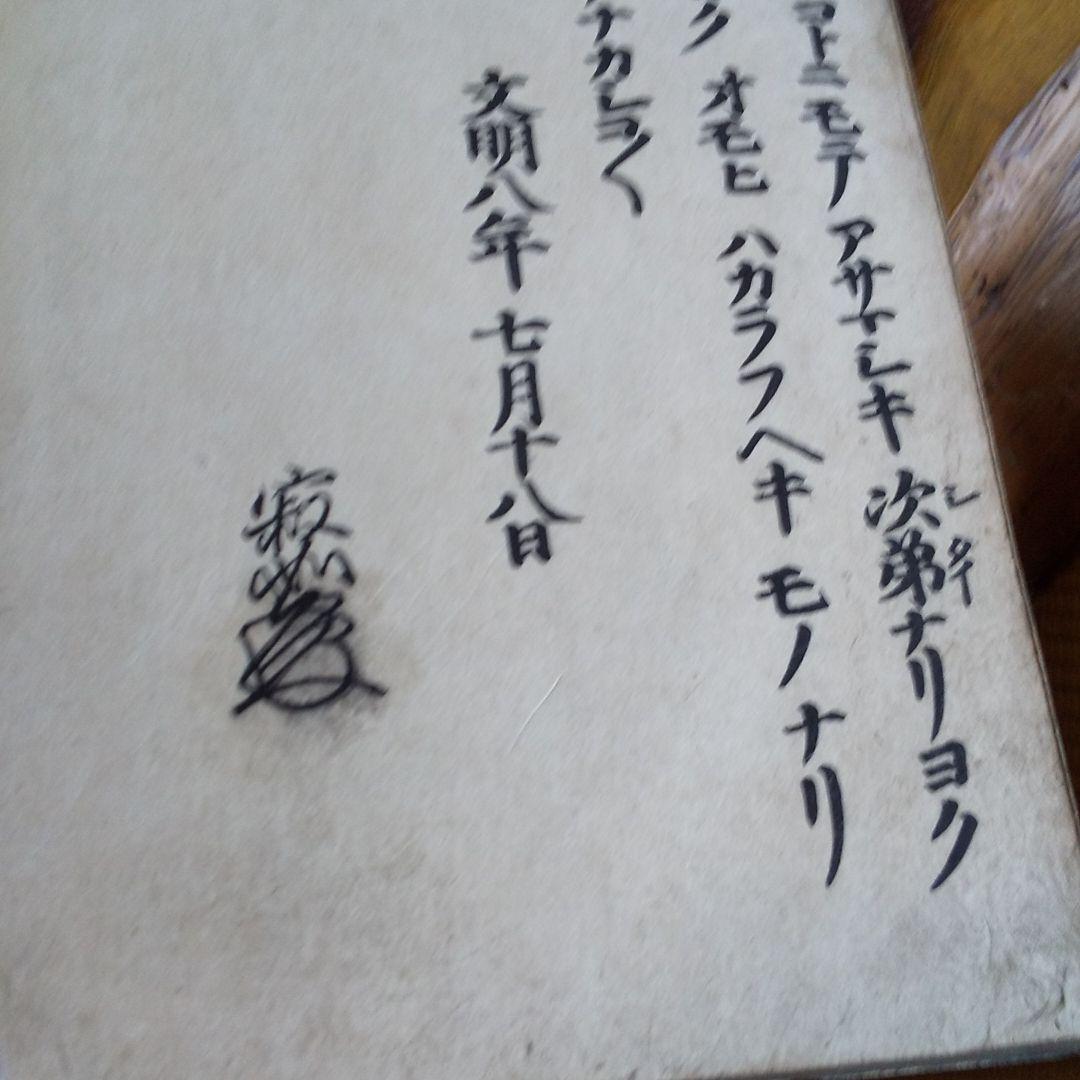 コトニモテアサマシキ次第ナリヨク
ク オモヒ ハカラフヘキ モノナリ
ナカシコ〱
文明八年 七月十八日
寂如